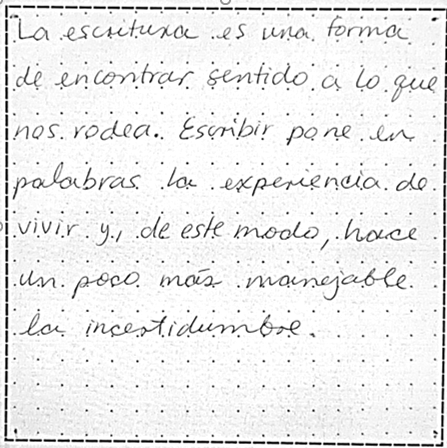 La escritura es una forma
de encontrar sentido a lo que
nos rodea. Escribir pone en
palabras la experiencia de
vivir y, de este modo, hace
un poco más manejable
la incertidumbre.